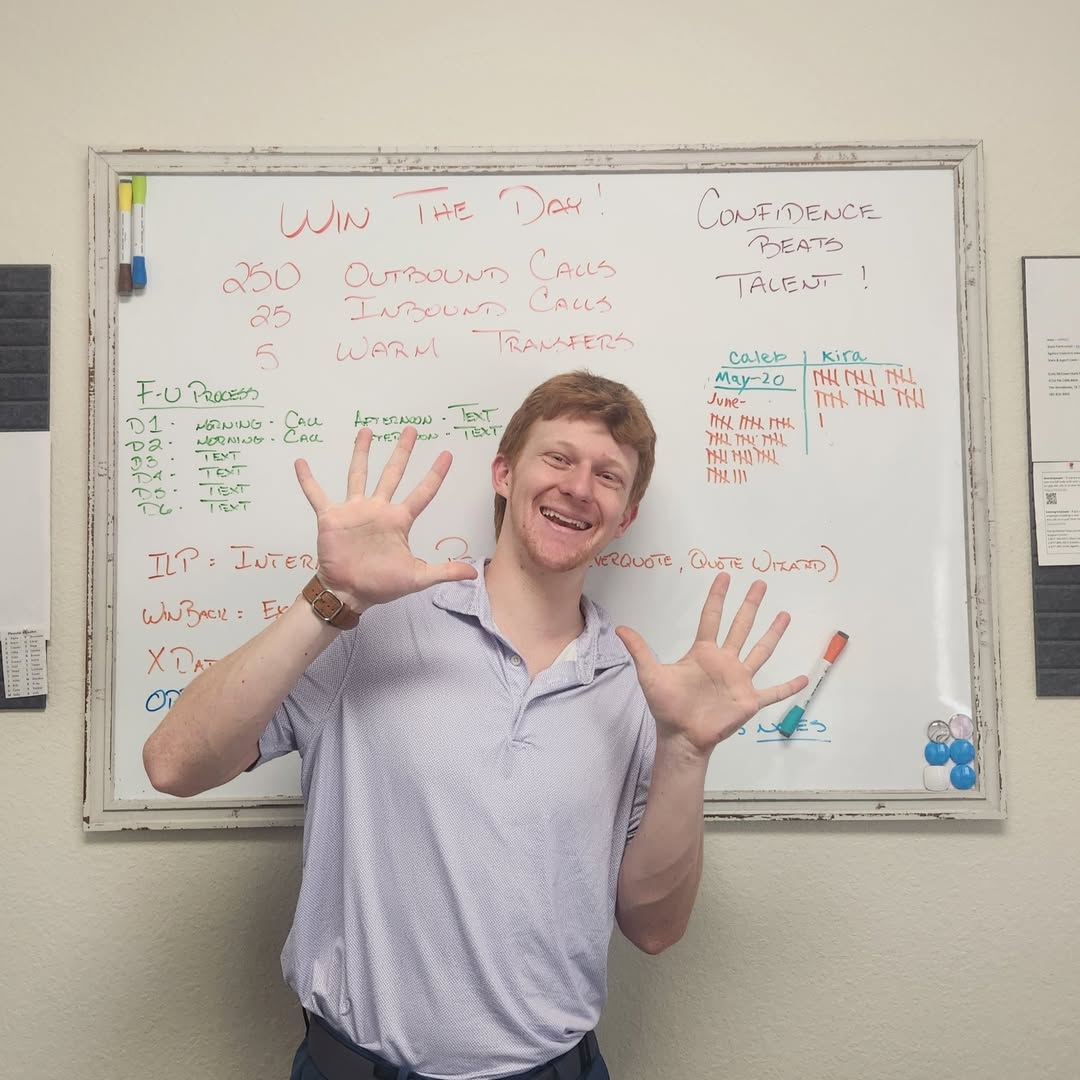 WIN THE DAY!
250 OUTBOUND CALLS
25 INBOUND CALLS
5 WARM TRANSFERS
CONFIDENCE
BEATS
TALENT!
Caleb Kira
May-20
June-
F-U PROCESS
D1 - MORNING - CALL AFTERNOON - TEXT
D2 - MORNING - CALL AFTERNOON - TEXT
D3 - TEXT
D4 - TEXT
D5 - TEXT
D6 - TEXT
ILP = INTER VERQUOTE, QUOTE WIZARD)
WINBACK = EX
X DAT